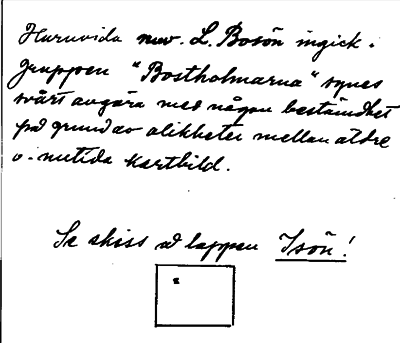 Huruvida nuv. L. Bosön ingick i
gruppen "Bostholmarna" synes
svårt avgöra med någon bestämdhet
på grund av olikheter mellan äldre
o. nutida kartbild.
Se skiss å lappen Isön!